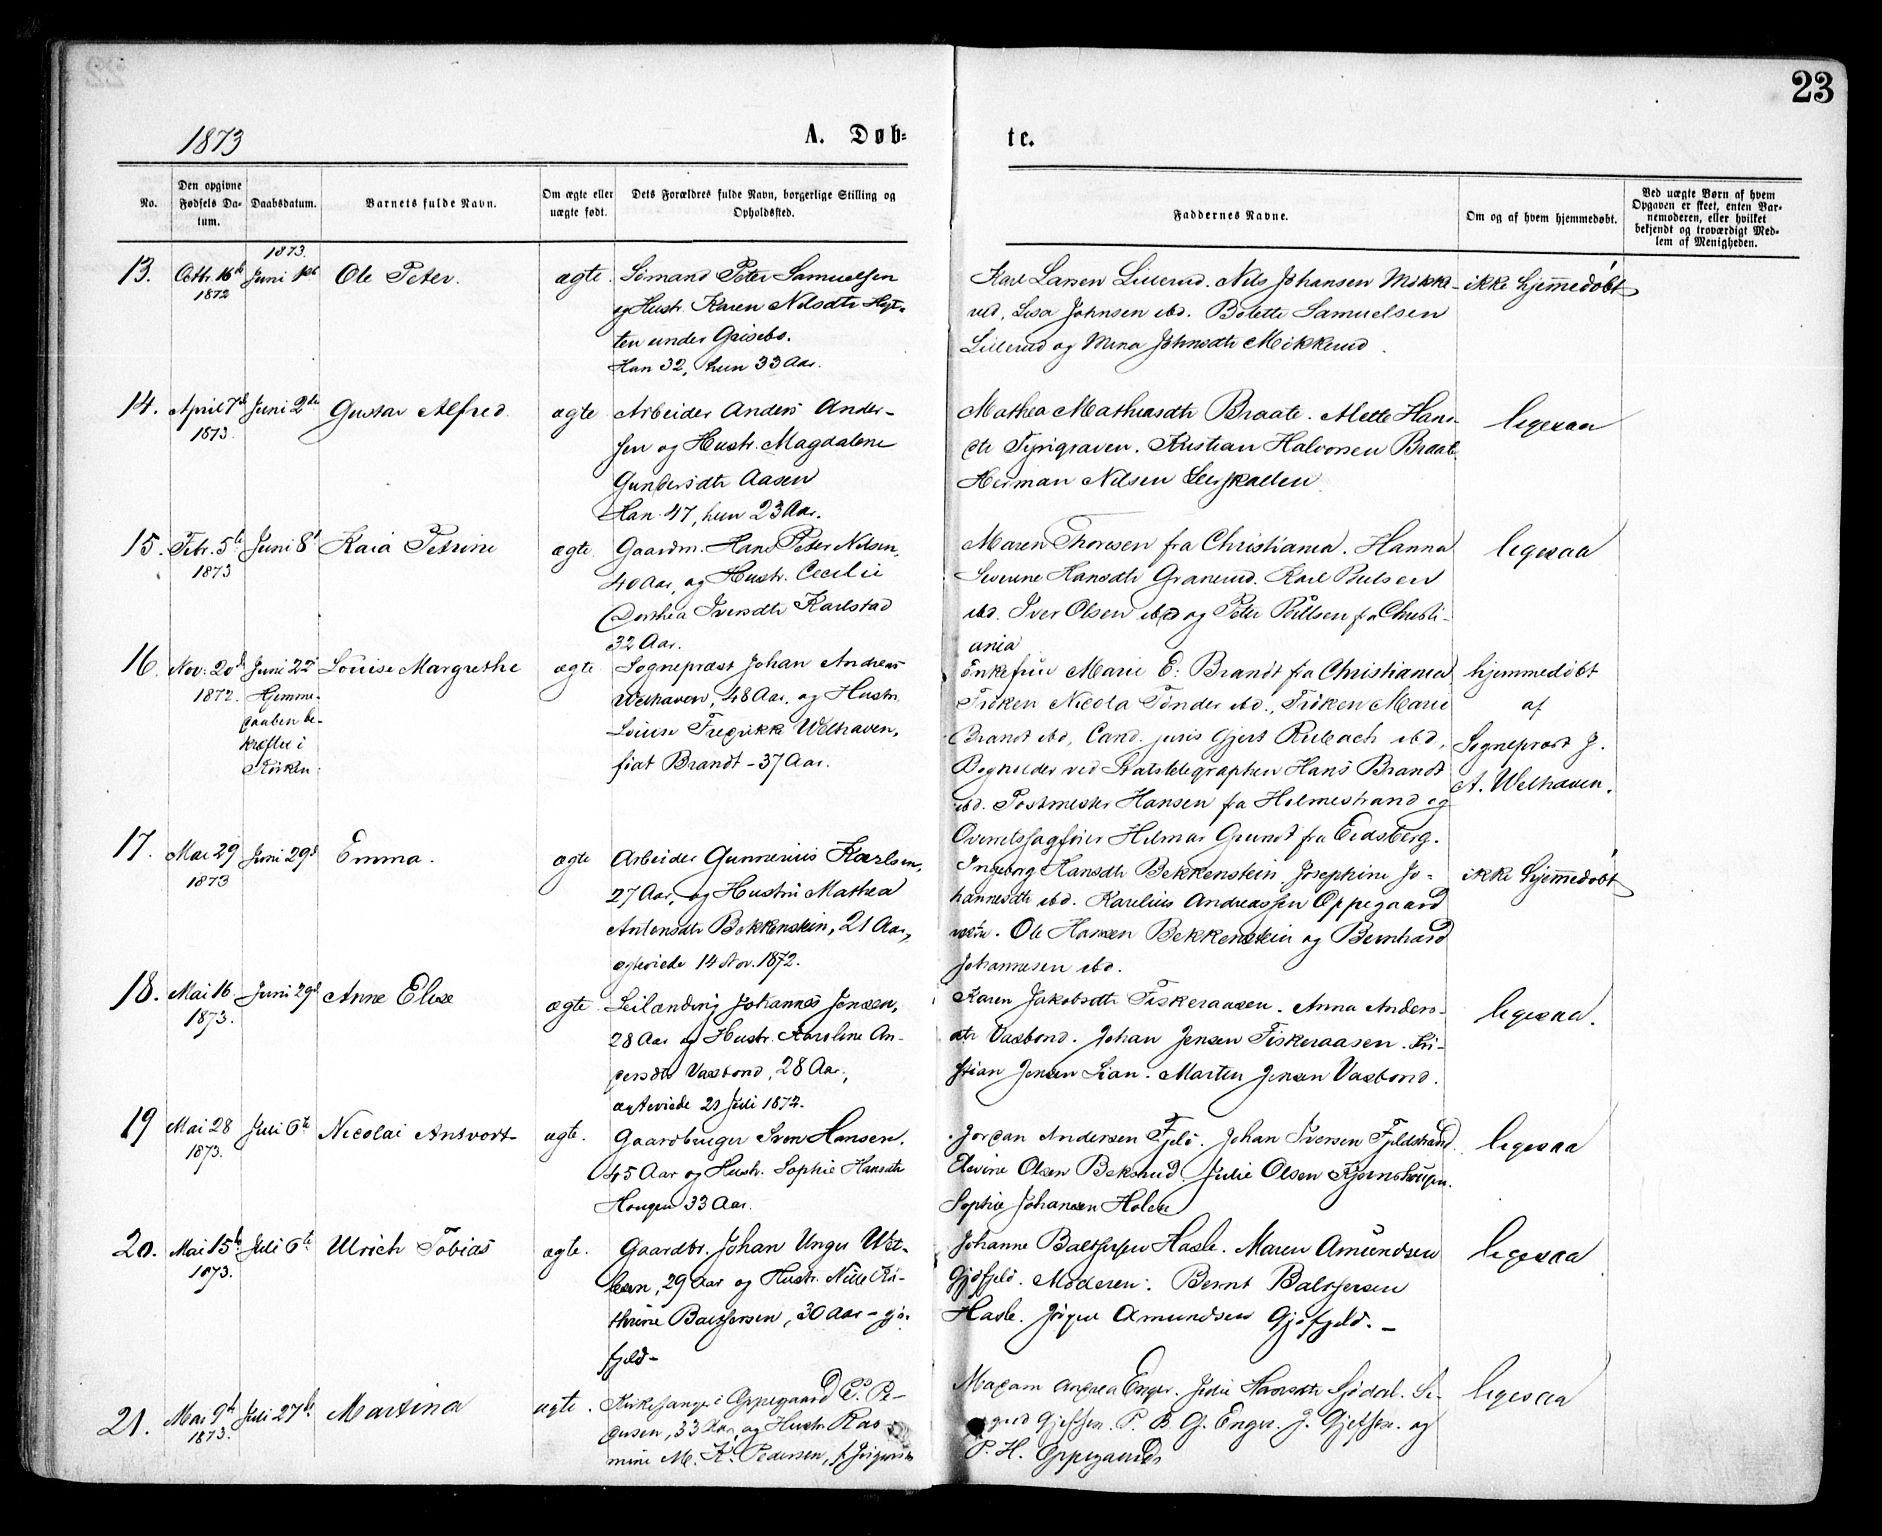 23
1873
A. Døb=
te.
No.
Den opgivne Fødsels Da-tum.
Daabsdatum.
Barnets fulde Navn.
Om ægte eller uægte født.
Dets Forældres fulde Navn, borgerlige Stilling og Opholdssted.
Faddernes Navne.
Om og af hvem hjemmedøbt.
Ved uægte Børn af hvem Opgaven er skeet, enten Bar-nemoderen, eller hvilket bekjendt og troværdigt Med-lem af Menigheden.
1873.
13. Octbr. 16de 1872 Juni 1ste Ole Peter. ægte.
Sømand Peter Samuelsen
og Hustr. Karen Nilsdtr
ten under Grisebo.
Han 32, hun 33 Aar.
Karl Larsen Lillerud. Nils Johansen Mikke-
rud, Lisa Johnsen ibd. Bolette Samuelsen
Lillerud og Mina Johnsdtr Mikkerud.
ikke hjemmedøbt
14. April 7de 1873. Juni 2den Gustav Alfred ægte
Arbeider Anders Ander-
sen og Hustr. Magdalene
Gundersdtr Aasen
Han 47, hun 23 Aar.
Mathea Mathiasdtr Braate. Alette Hans-
dtr Tyrigraven. Kristian Halvorsen Braate
Herman Nilsen
ligesaa
15. Febr. 5te 1873 Juni 8de Kaia Petrine ægte.
Gaardm. Hans Peter Nilsen,
40 Aar, og Hustr. Cecilie
Dorthea Iversdtr Karlstad
32 Aar.
Maren Thoresen fra Christiania. Hanna
Severine Hansdtr Granerud. Karl Pulsen
ibd. Iver Olsen ibd og Peter Pullsen fra Christi-
ania
ligesaa
16. Nov. 20de 1872. Juni 22de
Hjemme-
daaben be-
kræftet i
Kirken.
Louise Margrethe ægte
Sognepræst Johan Andreas
Welhaven, 48 Aar, og Hustr.
Louise Fredrikke Welhaven,
født Brandt - 37 Aar.
Enkefrue Marie E. Brandt fra Christiania
Frøken Nicola Tønder ibd., Frøken Marie
Brandt ibd, Cand. juris Gjert Rubach ibd,
Bogholder ved Statstelegraphen Hans Brandt
ibd. Postmester Hansen fra Holmestrand og
Overretssagfører Hilmar Grundt fra Eidsberg.
hjemmedøbt
af
Sognepræst J.
A. Welhaven.
17. Mai 29 1873 Juni 29de Emma. ægte
Arbeider Gunnerius Karlsen,
27 Aar, og Hustru Mathea
Antonsdtr Bekkenstein, 21 Aar,
ægteviede 14 Nov. 1872.
Ingeborg Hansdtr Bekkenstein, Josephine Jo-
hannesdtr ibd. Karelius Andreassen Oppegaard
Ole Hansen Bekkenstein og Bernhard
Johannesen ibd.
ikke hjemmedøbt
18. Mai 16 1873. Juni 29de Anne Elise ægte
Leilænding Johannes Jensen,
28 Aar og Hustr. Karoline An-
dersdtr Vasbond, 28 Aar,
ægteviede 21 Juli 1872.
Karen Jakobsdtr Fiskeraasen. Anna Anders-
dtr Vasbond. Johan Jensen Fiskeraasen. Kri-
stian Jensen Lian. Martin Jensen Vasbond.
ligesaa.
19 Mai 28 1873. Juli 6te Nicolai Antvort ægte.
Gaardbruger Sven Hansen,
45 Aar og Hustr. Sophie Hansdtr
Hougen 33 Aar.
Jordan Andersen Fjeld. Johan Iversen Fjeldstrand
Elevine Olsen Beksrud. Julie Olsen
Sophie Johansen Holen
ligesaa
20. Mai 15de 1873. Juli 6te Ulrich Tobias ægte.
Gaardbr. Johan Unger Wet-
lesen, 29 Aar og Hustr. Nille Ka-
thrine Baltsersen, 30 Aar - Gjø-
fjeld-
Johanne Baltsersen Hasle. Maren Amundsen
Gjøfjeld. Moderen. Bernt Baltsersen
Hasle. Jørgen Amundsen Gjøfjeld. -
ligesaa
21. Mai 9de 1873. Juli 27de Martina ægte.
Kirkesanger i Oppegaard C. Pe-
dersen, 33 Aar, og Hustr. Ras
mine M. K. Pedersen, f. Jørgensen
Madam Andrea Enger. Julie Hansdtr Sjødal. Si-
Gjefsen. P. B. G. Enger. J. Gjefsen. og
P. H. Oppegaard
ligesaa